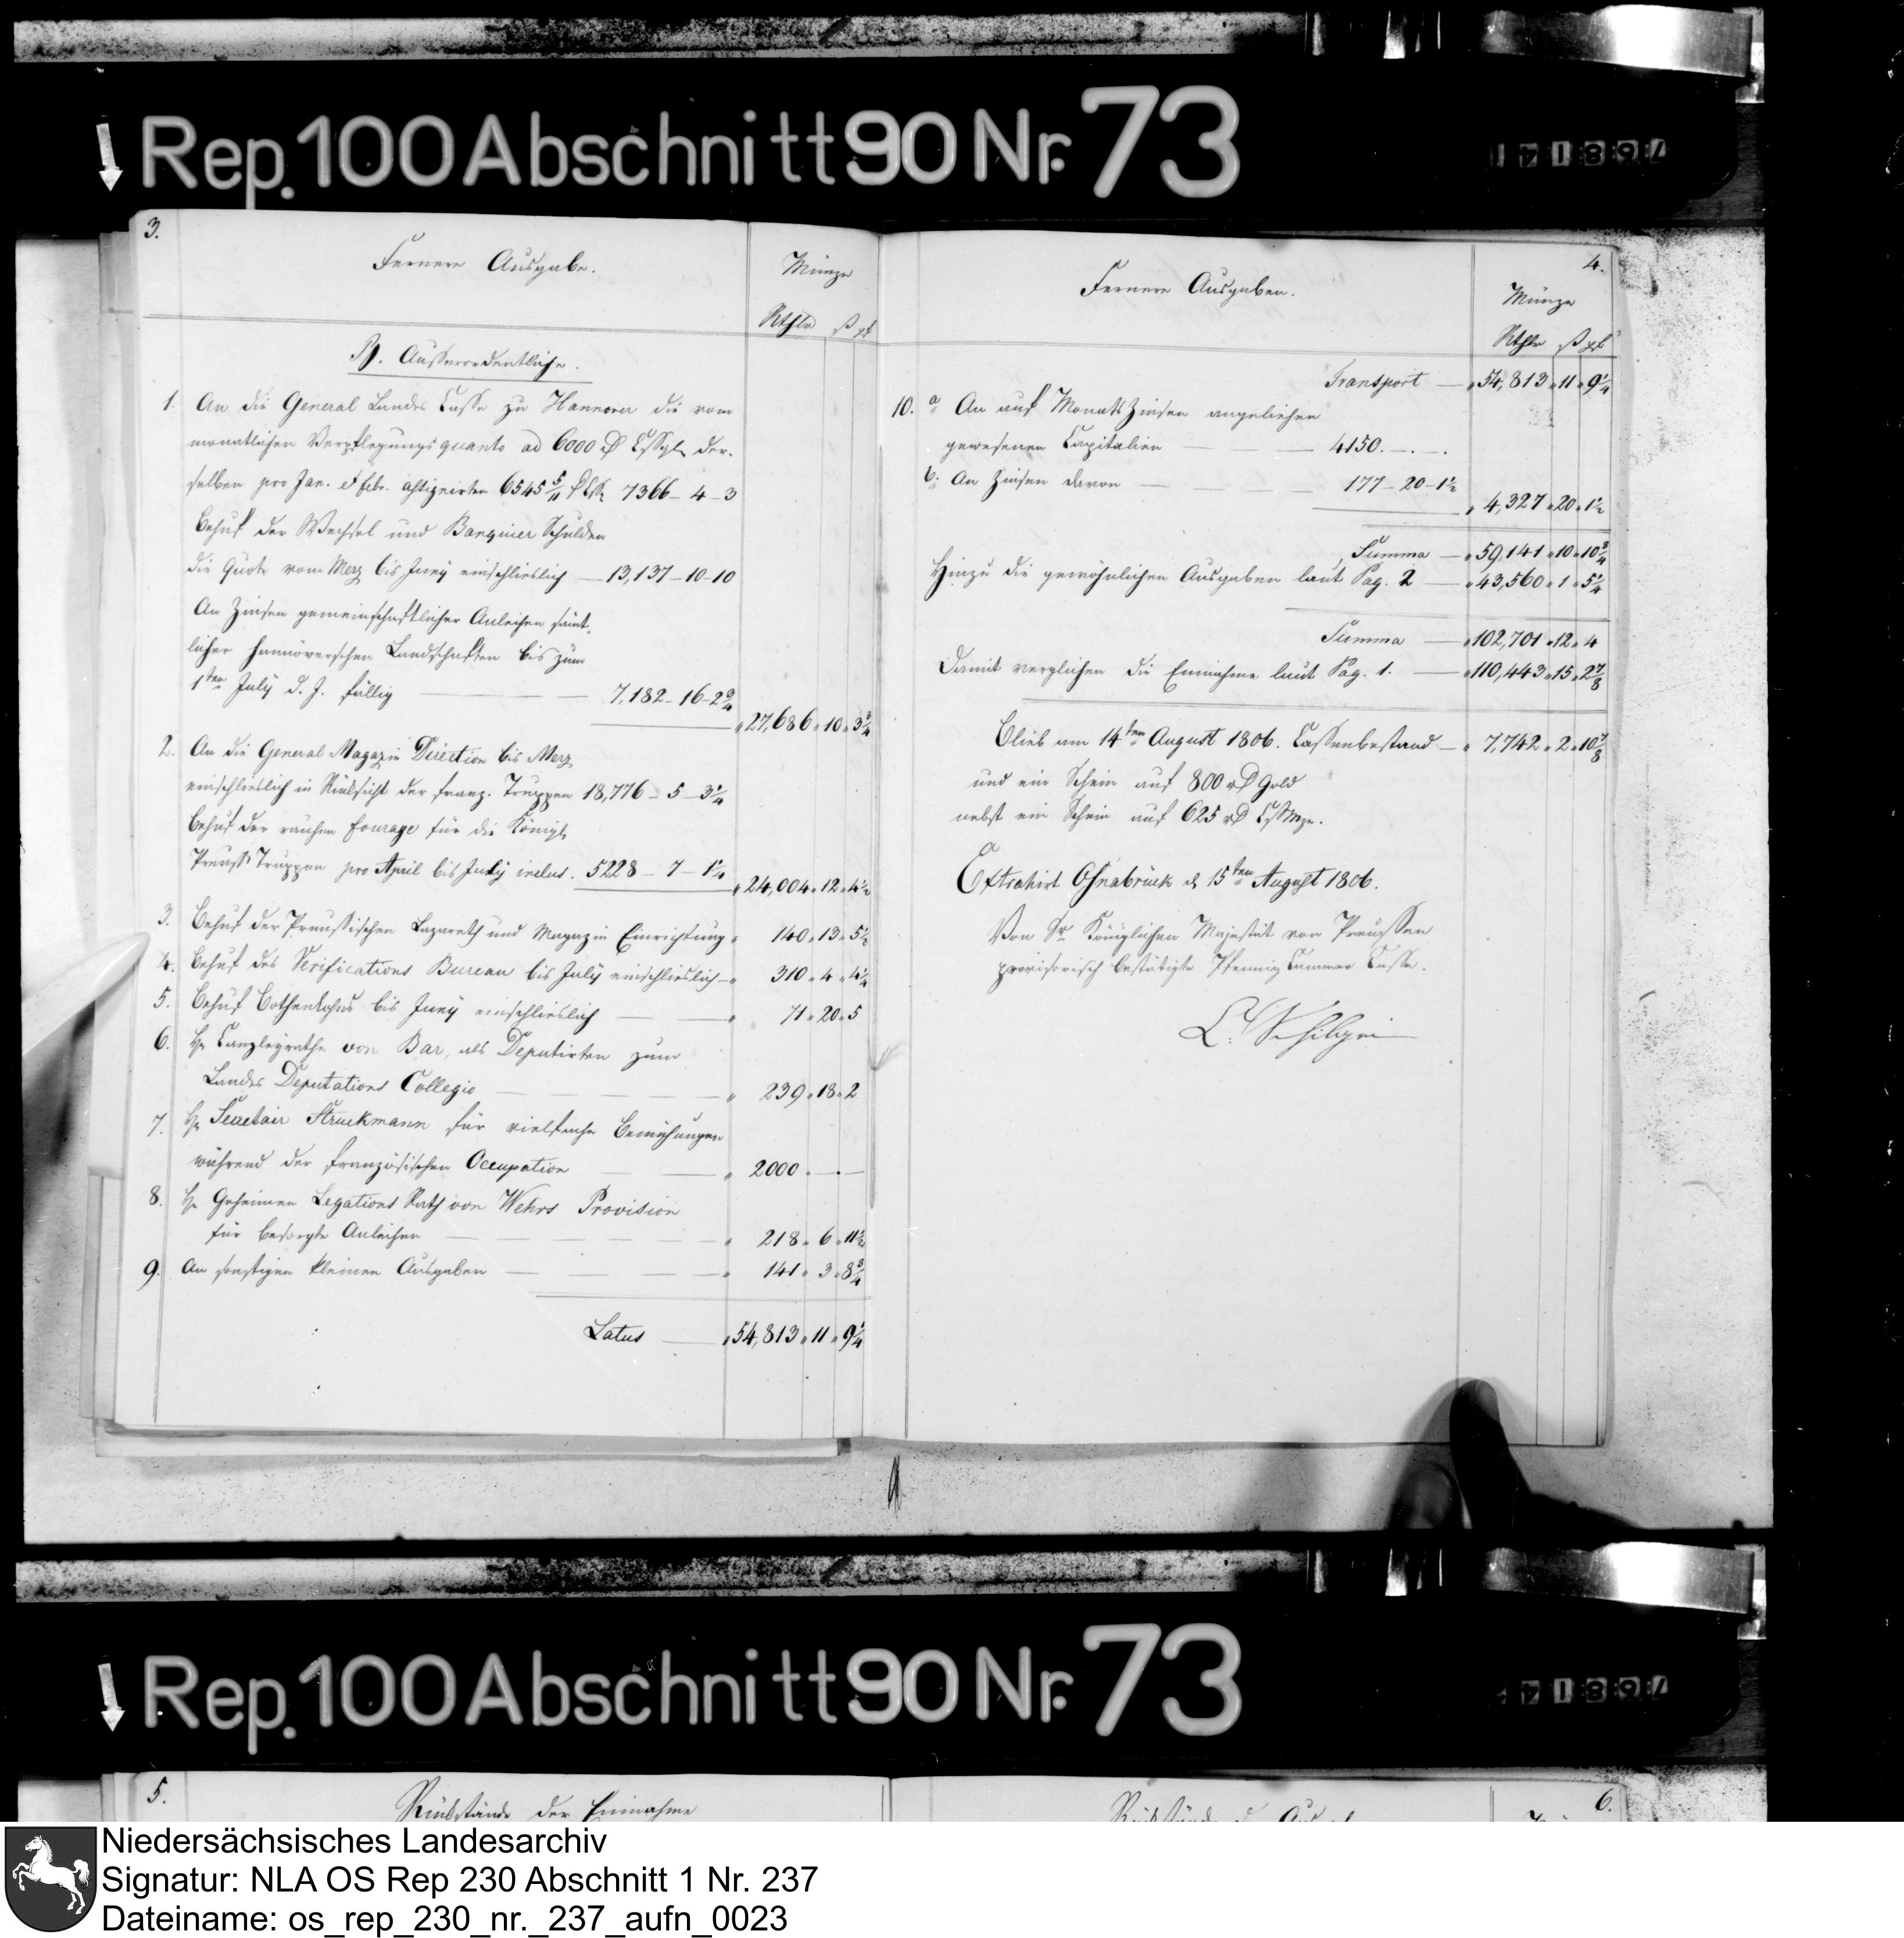 Rep. 100 Abschnitt 90 Nr. 73
3.
Fernere Ausgabe.
Münze
Rthlr ß pf
B. Ausserordentliche.
1. An die General Landes Casse zu Hannover die vom
monatlichen Verpflegungsquanto ad 6000 der-
selben pro Jan. & Febr. assignirten 6545 5/11 7366 - 4 - 3
Behuf der Wechsel und Banquier Schulden
die Quote vom Merz bis Juny einschlieslich — 13,137 - 10 - 10
An Zinsen gemeinschaftlicher Anleihen sämt-
licher hannöverschen Landschaften bis zum
1ten July d. J. fällig — 7,182 - 16 - 2 3/4
27,686 " 10 " 3 3/4
2. An die General Magazin Direction bis Merz
einschlieslich in Rücksicht der franz. Truppen 18,776 - 5 - 3 1/4
Behuf der rauhen Fourage für die Königl.
Preuss. Truppen pro April bis July inclus. 5228 - 7 - 1 1/4
24,004 " 12 " 4 1/2
3. Behuf der Preussischen Lazareth und Magazin Einrichtung " 140 " 13 " 5 1/2
4. Behuf des Verifications Bureau bis July einschlieslich — " 310 " 4 " 4 1/4
5. Behuf Bothenlohns bis Juny einschlieslich — " 71 " 20 " 5
6. Hr Canzleyrathe von Bar, als Deputirten zum
Landes Deputations Collegio — " 239 " 18 " 2
7. Hr Secretair Struckmann für vielfache Bemühungen
während der französischen Occupation — " 2000 . — . —
8. Hr Geheimen Legations Rath von Wehrs Provision
für besorgte Anleihen — " 218 " 6 " 11 1/2
9. An sonstigen kleinen Ausgaben — " 141 " 3 " 8 3/4
Latus — " 54,813 " 11 " 9 1/4
4.
Fernere Ausgaben.
Münze
Rthlr ß pf
Transport — " 54,813 " 11 " 9 1/4
10. a. An auf Monats Zinsen angeliehen
gewesenen Capitalien — 4150. — . — .
b. An Zinsen davon — 177 - 20 - 1 1/2
" 4,327 " 20 " 1 1/2
Summa — " 59,141 " 10 " 10 3/4
Hinzu die gewöhnlichen Ausgaben laut Pag. 2 — " 43,560 " 1 " 5 1/4
Summa — " 102,701 " 12 " 4
Damit verglichen die Einnahme laut Pag. 1. — " 110,443 " 15 " 2 7/8
Blieb am 14ten August 1806. Cassenbestand — " 7,742 " 2 " 10 7/8
und ein Schein auf 800 Gold
nebst ein Schein auf 625
Extrahirt Osnabrück d. 15ten August 1806.
Von Sr Königlichen Majestät von Preussen
provisorisch bestätigte Pfennig Cammer Casse.
Rep. 100 Abschnitt 90 Nr. 73
5.
Rückstände der Einnahme
6.
Niedersächsisches Landesarchiv
Signatur: NLA OS Rep 230 Abschnitt 1 Nr. 237
Dateiname: os_rep_230_nr._237_aufn_0023